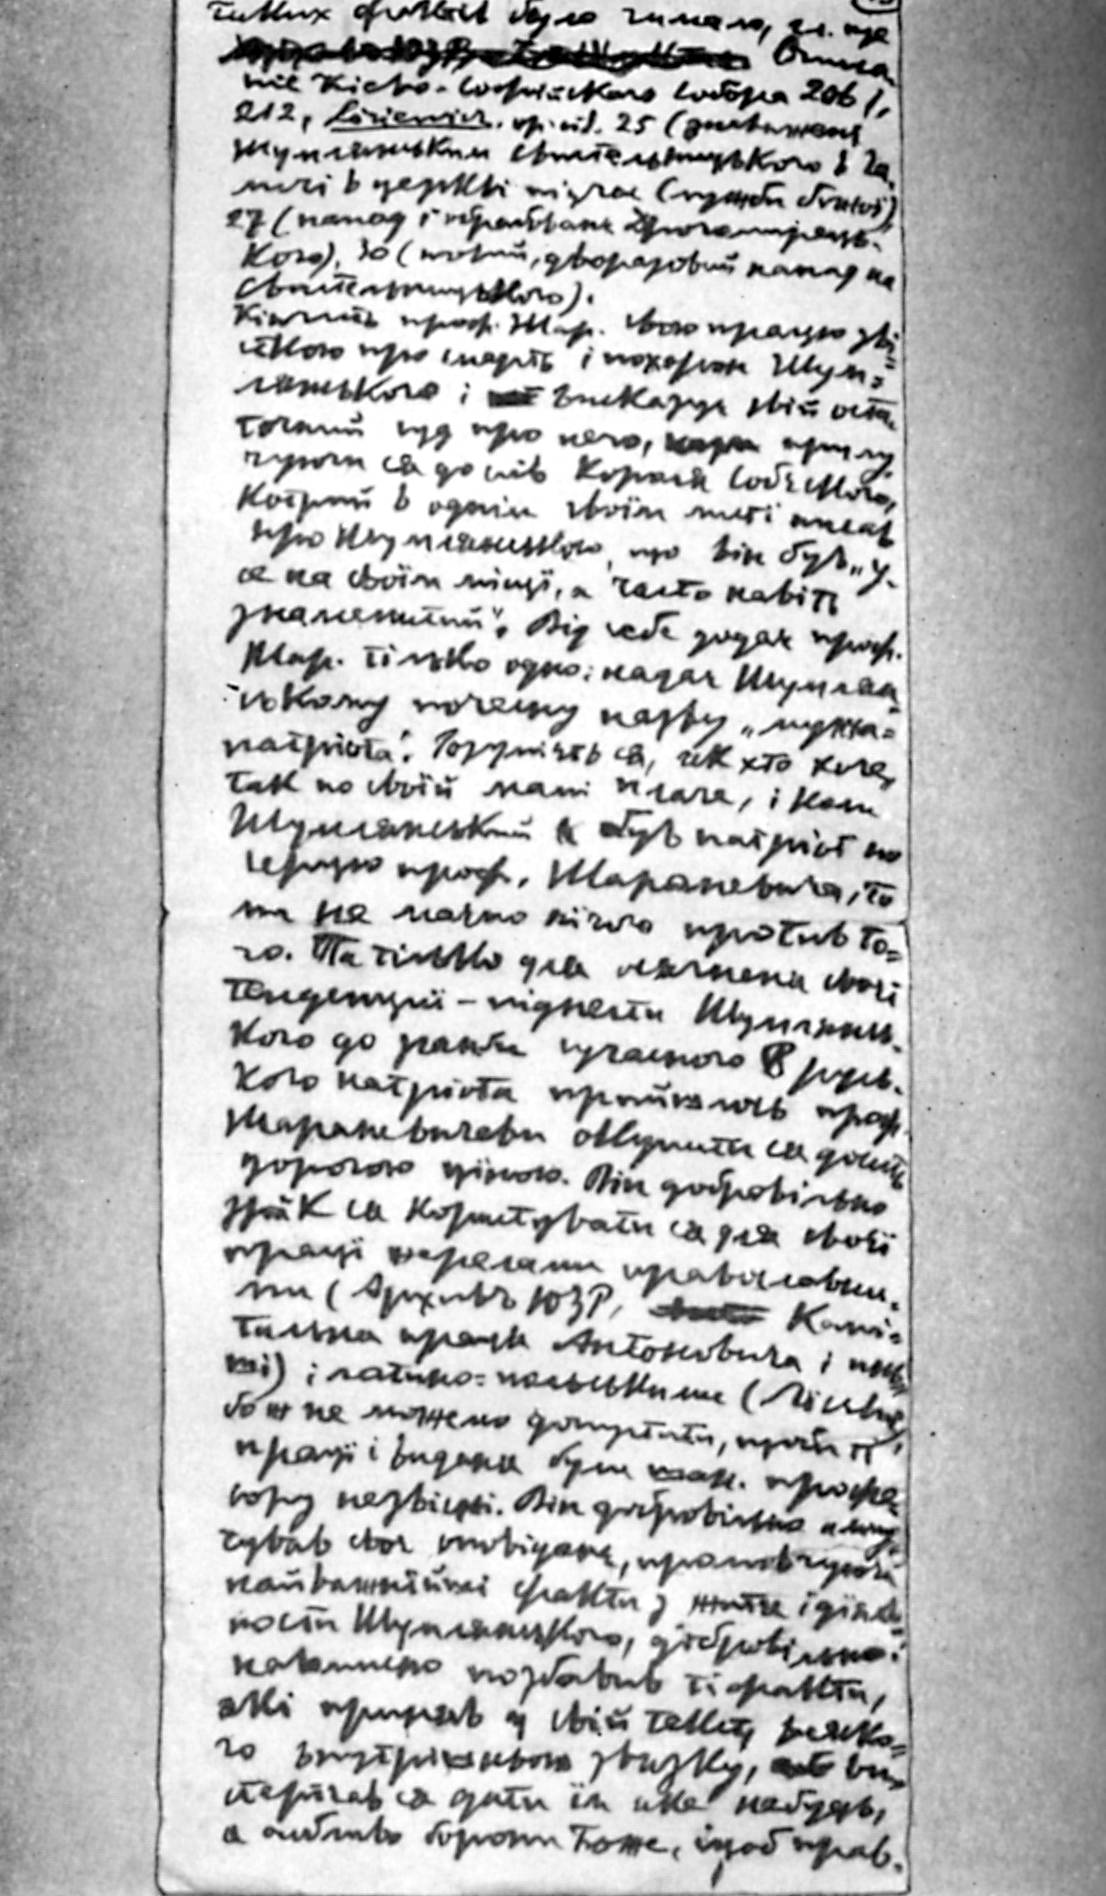 таких фактів було чимало, гл. ще
Описа-
ніе Кіево-Софійскаго собора 206),
212, Lisiewicz, op. cit. 25 (
Шумлянським Свистельницького в За-
мочі в церкві підчас служби божої)
27 (напад і
кого), 30 (новий, дворазовий напад на
Свистельницького).
Кінчить проф. Шар. свою працю зві-
сткою про смерть і похорон Шум-
лянського і висказує свій оста-
точний суд про него, прилу-
чуючи ся до слів короля Собєского,
котрий в однім своїм листі писав
про Шумлянського, що він був „у-
се на своїм місці, а часто навіть
знаменитий“. Від себе додає проф.
Шар. тілько одно: надає Шумлян-
ському почесну назву „мужа-
патріота“. Розумієть ся, як хто хоче,
так по своїй мамі плаче, і коли
Шумлянський був патріот по
серцю проф. Шараневича, то
ми не маємо нічого против то-
го. Та тілько для осягненя своєї
тенденції – піднести Шумлянсь-
кого до ранги сучасного русь-
кого патріота прийшлось проф.
Шараневичеви окупити ся досить
дорогою ціною. Він добровільно
зрік ся користувати ся для своєї
праці жерелами православни-
ми (Архивъ ЮЗР, Капі-
тальна праця Антоновича і инь-
ші) і латино-польськими (
бо ж не можемо допустити, щоби ті
праці і виданя були проф-
сору незвісні. Він добровільно
своє оповіданє, промовчуючи
найважнійші факти з житя і діяль-
ности Шумлянського, добровільно і
навмисно позбавив ті факти,
які приняв у свій текст, всяко-
го внутрішнього звязку,
стерігав ся дати їм яке небудь,
а особливо борони Боже, щоб прав-